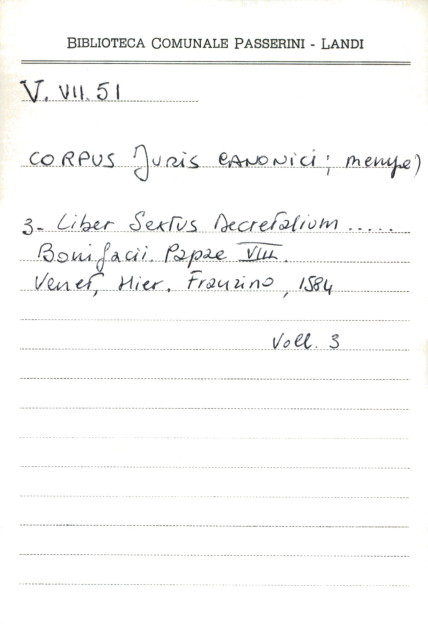 BIBLIOTECA COMUNALE PASSERINI - LANDI
V. VII. 51
CORPUS Juris CANONICI;
3- Liber Sextus Decretalium .....
Bonifacii Papae VIII.
Venet, Hier. Franzino, 1584
Voll. 3